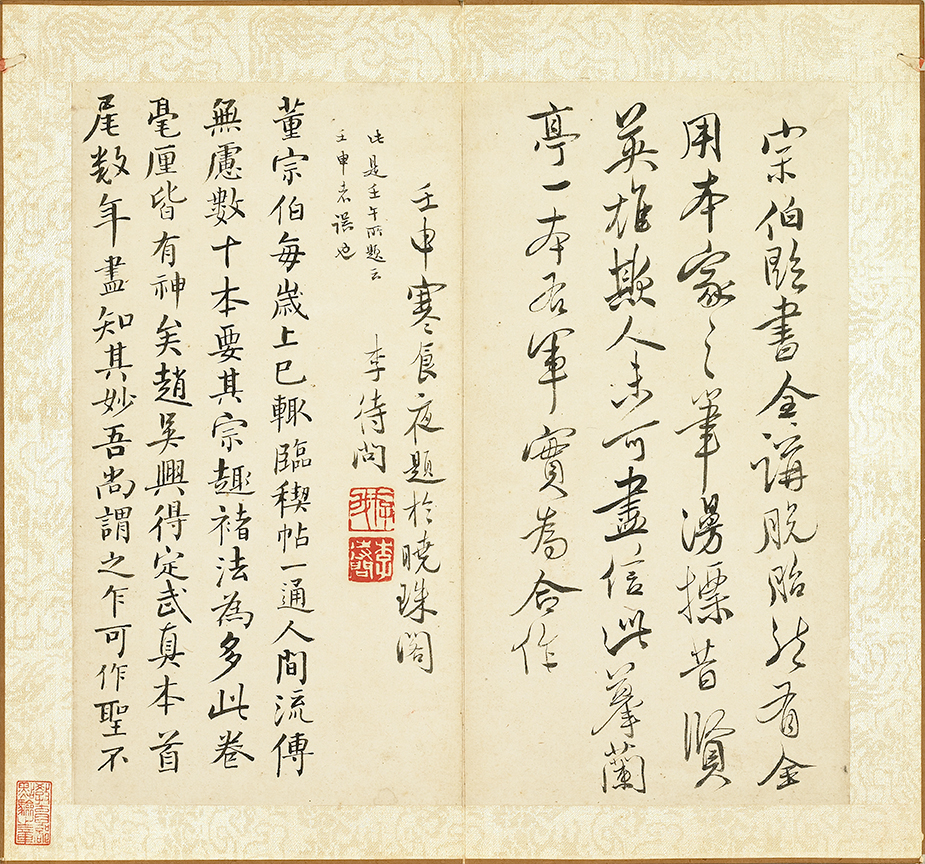 宗伯臨書全講脫胎然有全
用本家之筆漫摽昔賢
英雄欺人未可盡信此摹蘭
亭一本右軍實為合作
壬申寒食夜題於曉珠閣
此是壬午所題云
壬申者誤也
李待問
存我
李待問
董宗伯每歲上巳輒臨禊帖一通人間流傳
無慮數十本要其宗趣褚法為多此卷
毫厘皆有神矣趙吳興得定武真本首
尾数年盡知其妙吾尚謂之乍可作聖不